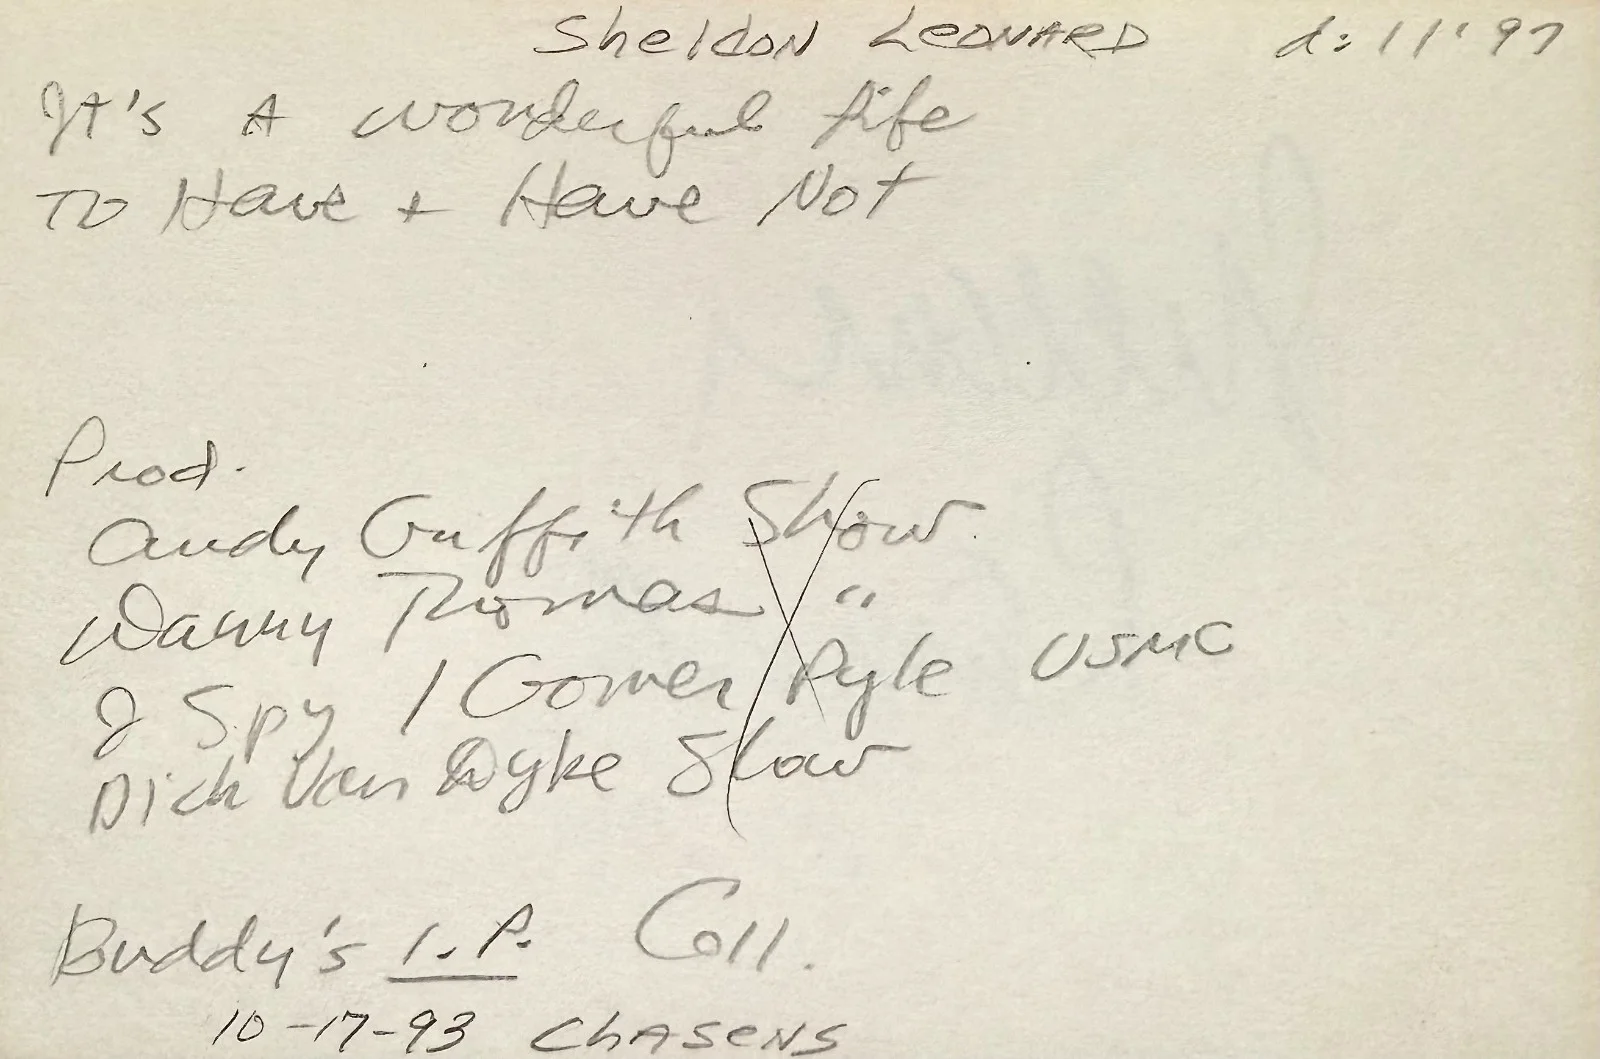 Sheldon Leonard d: 11'97
It's A Wonderful Life
To Have + Have Not
Prod.
Andy Griffith Show.
Danny Thomas "
I Spy / Gomer Pyle USMC
Dick Van Dyke Show
Buddy's I.P. Coll.
10-17-93 Chasens